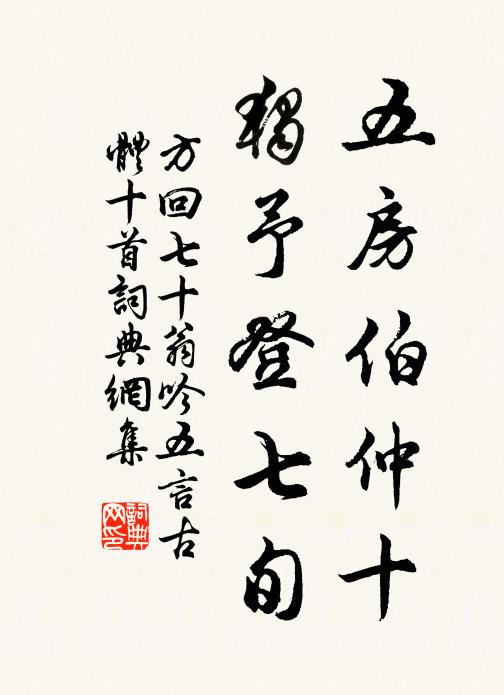 五房伯仲十
獨予登七旬
方回七十翁吟五言古
體十首詞典網集
詞典網印